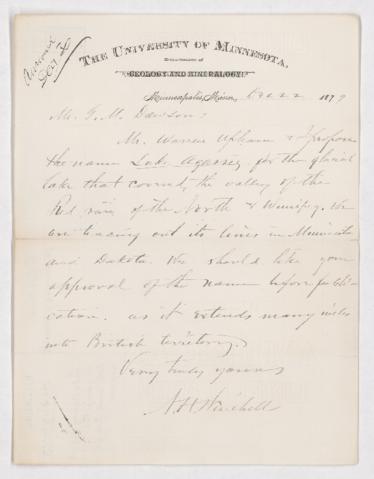 THE UNIVERSITY OF MINNESOTA.
Department of
GEOLOGY AND MINERALOGY.
Minneapolis, Minn. Dec 22 1879
Mr. G. M. Dawson:
Mr. Warren Upham & I propose
the name Lake Agassiz, for the glacial
lake that covered the valley of the
Red river of the North & Winnipeg. We
are tracing out its lines in Minnesota
and Dakota. We should like your
approval of the name before publi-
cation. as it extends many miles
into British territory.
Very truly yours
N H Winchell